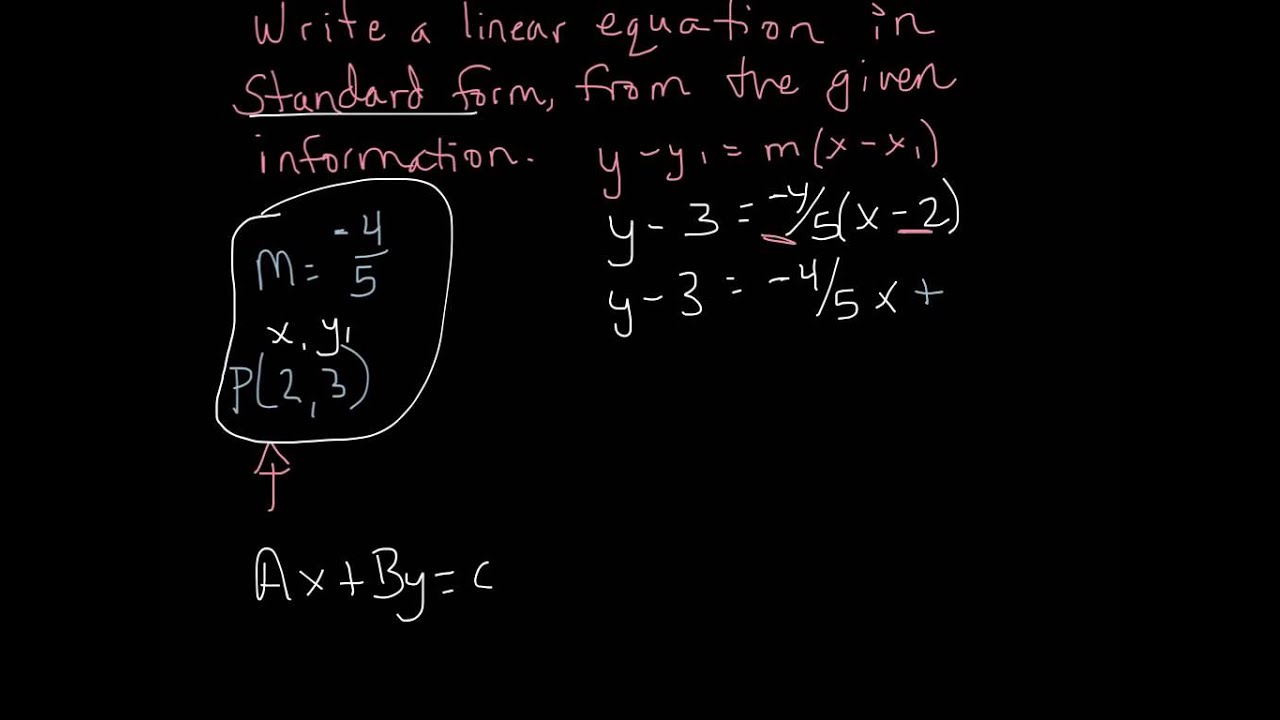 Write a linear equation in
Standard form, from the given
information.
y - y₁ = m(x - x₁)
y - 3 = -4/5(x - 2)
y - 3 = -4/5 x +
m = -4/5
x₁ y₁
P(2, 3)
Ax + By = C